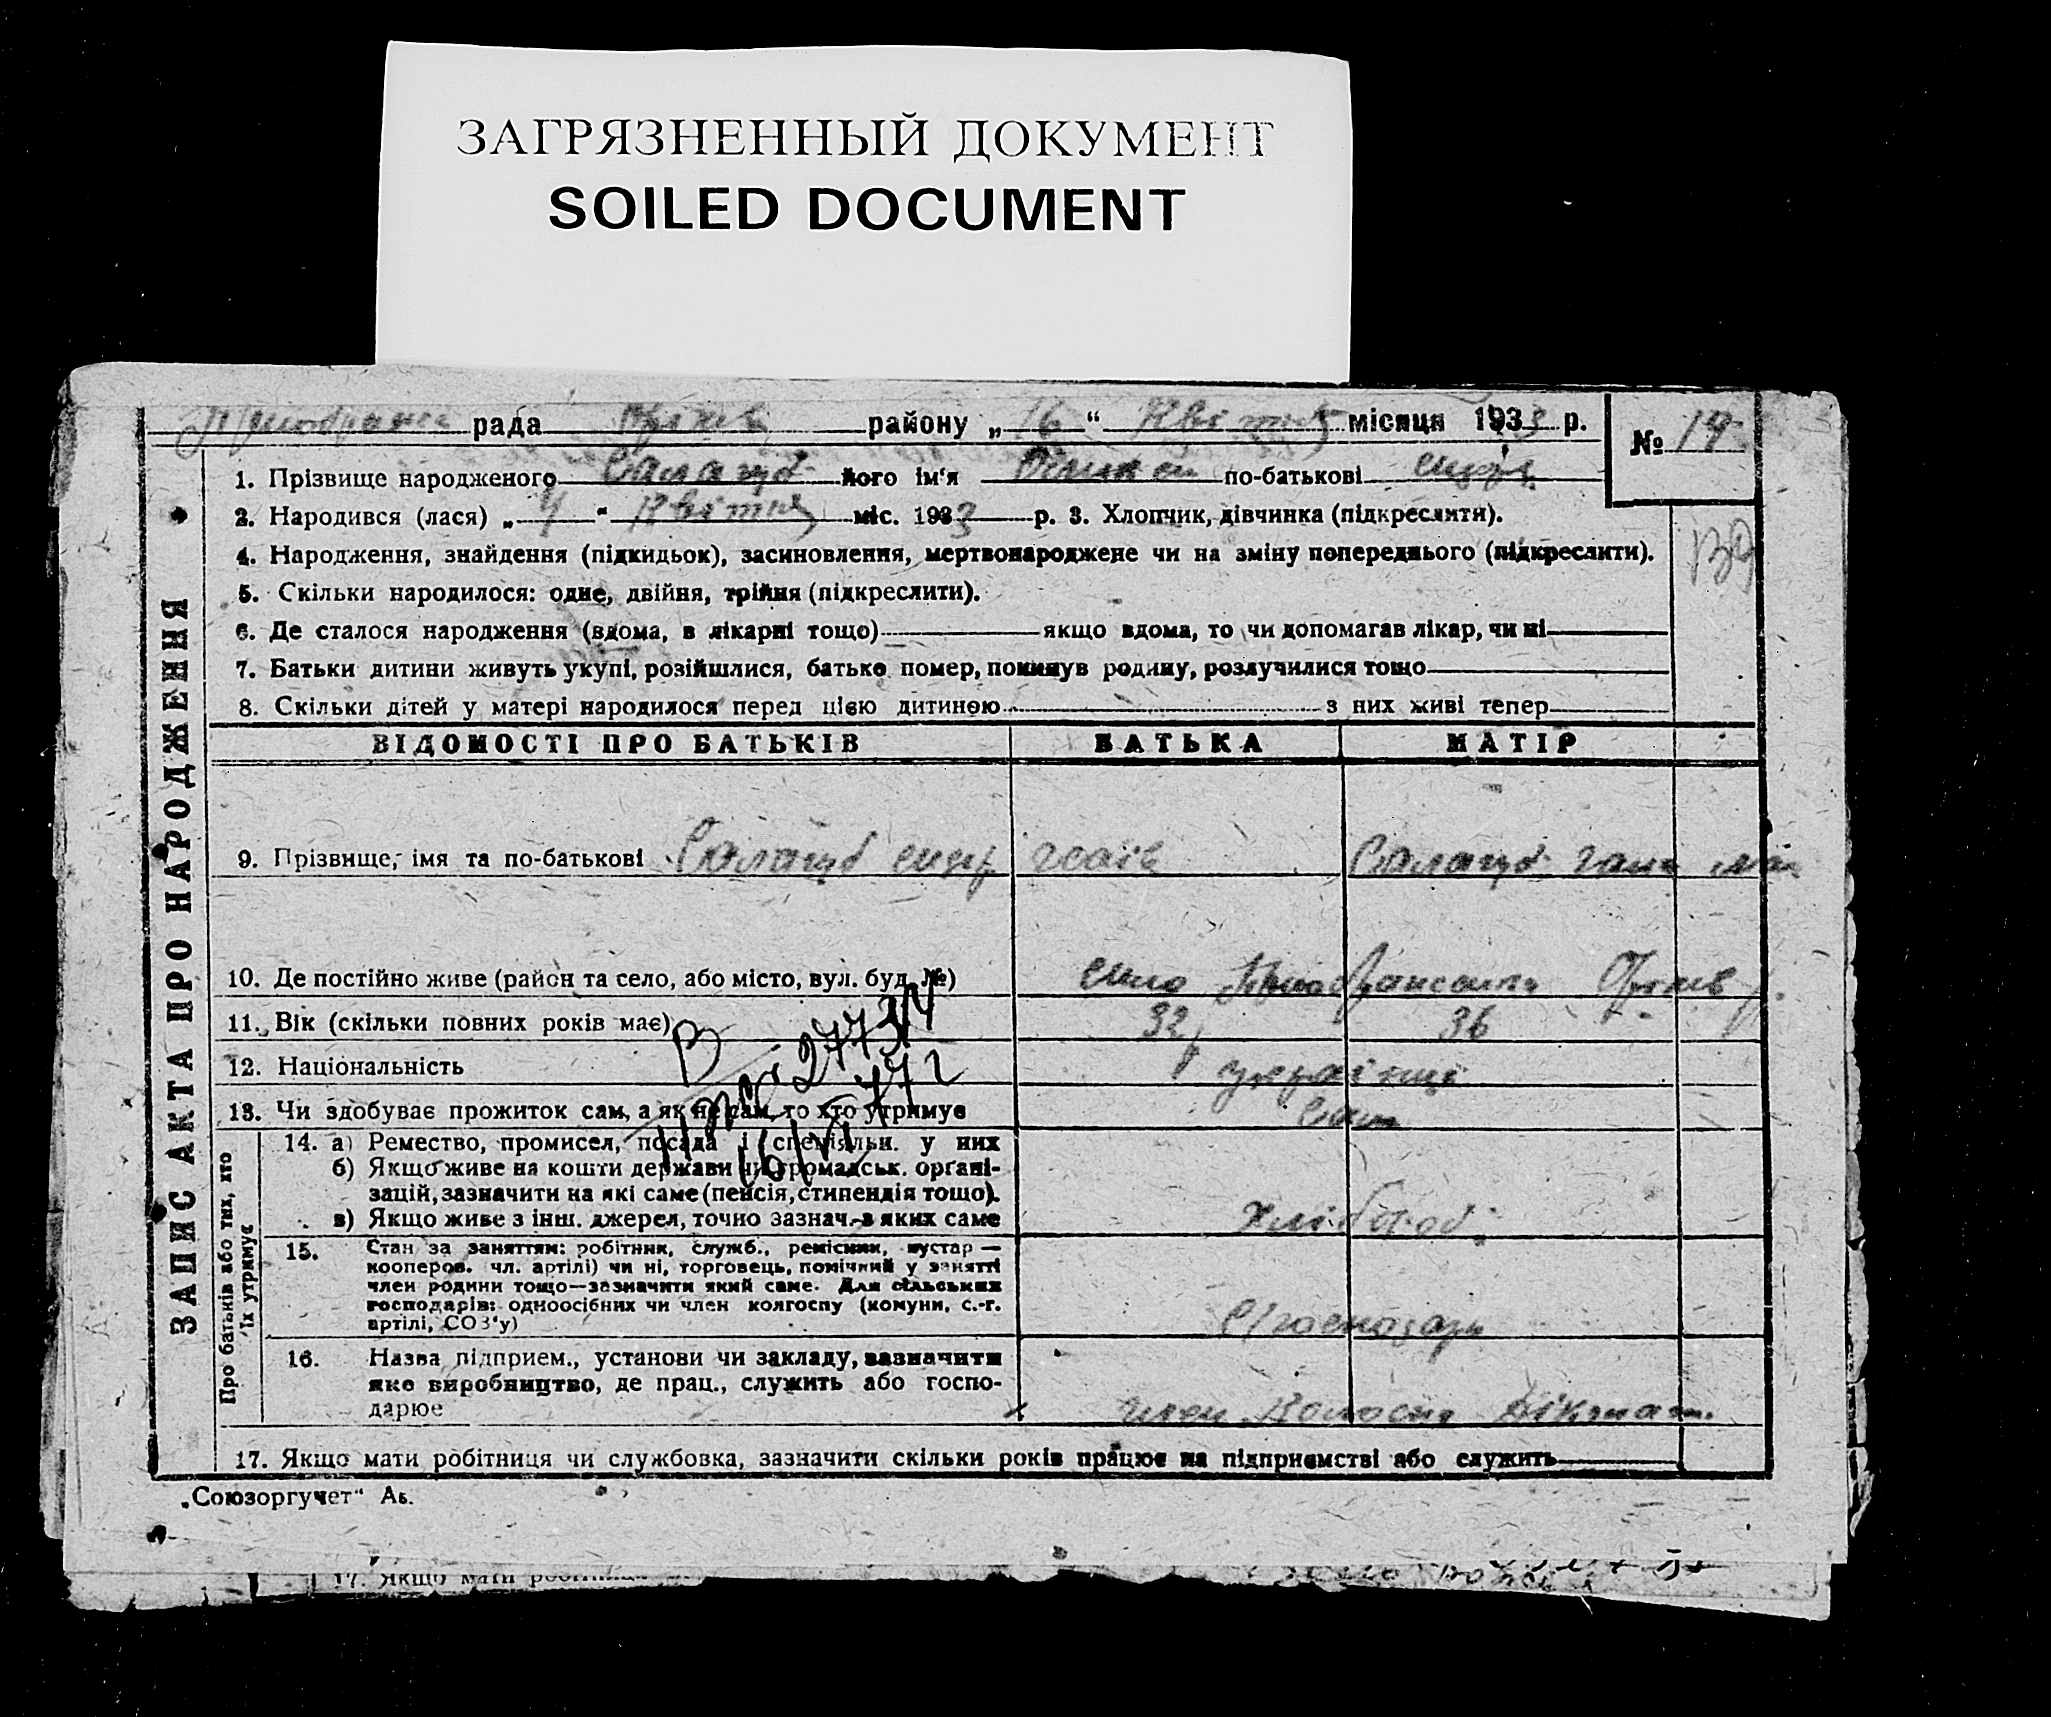 ЗАГРЯЗНЕННЫЙ ДОКУМЕНТ
SOILED DOCUMENT
рада району „ 16 “ Квітня місяця 1933 р.
№ 19
1. Прізвище народженого Салагуб його ім'я по-батькові
2. Народився (лася) „ 4 “ Квітня міс. 1933 р. 3. Хлопчик, дівчинка (підкреслити).
4. Народження, знайдення (підкидьок), засиновлення, мертвонароджене чи на зміну попереднього (підкреслити).
5. Скільки народилося: одне, двійня, трійня (підкреслити).
6. Де сталося народження (вдома, в лікарні тощо) якщо вдома, то чи допомагав лікар, чи ні
7. Батьки дитини живуть укупі, розійшлися, батько помер, покинув родину, розлучилися тощо
8. Скільки дітей у матері народилося перед цією дитиною з них живі тепер
ЗАПИС АКТА ПРО НАРОДЖЕННЯ
ВІДОМОСТІ ПРО БАТЬКІВ БАТЬКА МАТІР
9. Прізвище, імя та по-батькові Салагуб Салагуб
10. Де постійно живе (район та село, або місто, вул. буд. №) село
11. Вік (скільки повних років має) 32 36
12. Національність українці
13. Чи здобуває прожиток сам, а як не сам, то хто утримує Сам
Про батьків або тих, хто їх утримує
14. а) Ремество, промисел, посада і спеціяльн. у них
б) Якщо живе на кошти держави чи громадськ. органі-
зацій, зазначити на які саме (пенсія, стипендія тощо).
в) Якщо живе з інш. джерел, точно зазнач. з яких саме Хлібороб
15. Стан за заняттям: робітник, служб., ремісник, кустар —
кооперов. чл. артілі) чи ні, торговець, помічний у занятті
член родини тощо—зазначити який саме. Для сільських
господарів: одноосібних чи член колгоспу (комуни, с.-г.
артілі, СОЗ'у) С/господар
16. Назва підприєм., установи чи закладу, зазначити
яке виробництво, де прац., служить або госпо-
дарює член
17. Якщо мати робітниця чи службовка, зазначити скільки років працює на підприємстві або служить
„Союзоргучет“ Аб.
17. Якщо мати